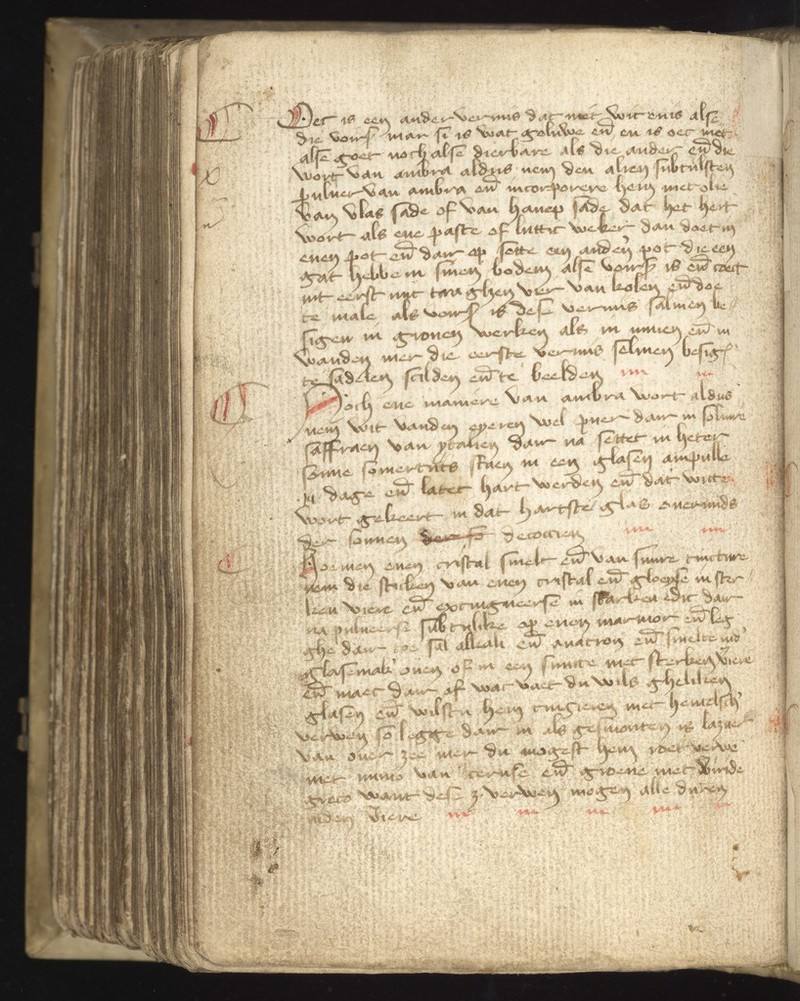 Het is een ander vernis dat niet wit en is alse
die vors̄ mar si is wat geluwe en̄ en is oec niet
alse goet noch alse dierbare als die ander en̄ die
wort van ambra aldus nem den alren subtilsten
puluer van ambra en̄ incorporere hem met olie
van vlas sade of van hanep sade dat het hert
wort als ene paste of luttic weker dan doet in
enen pot en̄ dair op sette een anderē pot die een
gat hebbe in sinen bodem alse vors̄ is en̄
int eerst mit traghen vier van kolen en̄ doe
te male als vors̄ is dese vernis salmen be
sigen in gronen werken als in muren en̄ in
wanden mer die eerste vernis selmen besigē
te sadelen scilden en̄ te beelden
Noch ene maniere van ambra wort aldus
nem wit vanden eyeren wel puer dair in soluire
saffraen van ytalien dair na settet in heter
sonne somertijts staen in een glasen ampulle
dage en̄ latet hart werden en̄ dat witte
wort gekeert in dat hartste glas ouermids
der sonnen decoctien
Hoemen enen cristal smelt en̄ van sinre tincture
nem die sticken van enen cristal en̄ gloeyse in ster
ken viere en̄ extingueerse in starken edic dair
na pulueerse subtijlike op enen marmor en̄ leg
ghe dair toe sal alkali en̄ anatron en̄ smelte
glasemak' ouen of in een smitte met sterken viere
en̄ maec dair of wat vaet du wils gheliken
glasen en̄ wilstu hem tingieren met hemelsch'
verwen so legge dair in als gesmouten is lazuer
van ouer zee mer du mogest hem roet verwē
met minio van ceruse en̄ groene met viride
greco want dese 3 verwen mogen alle duren
inden viere